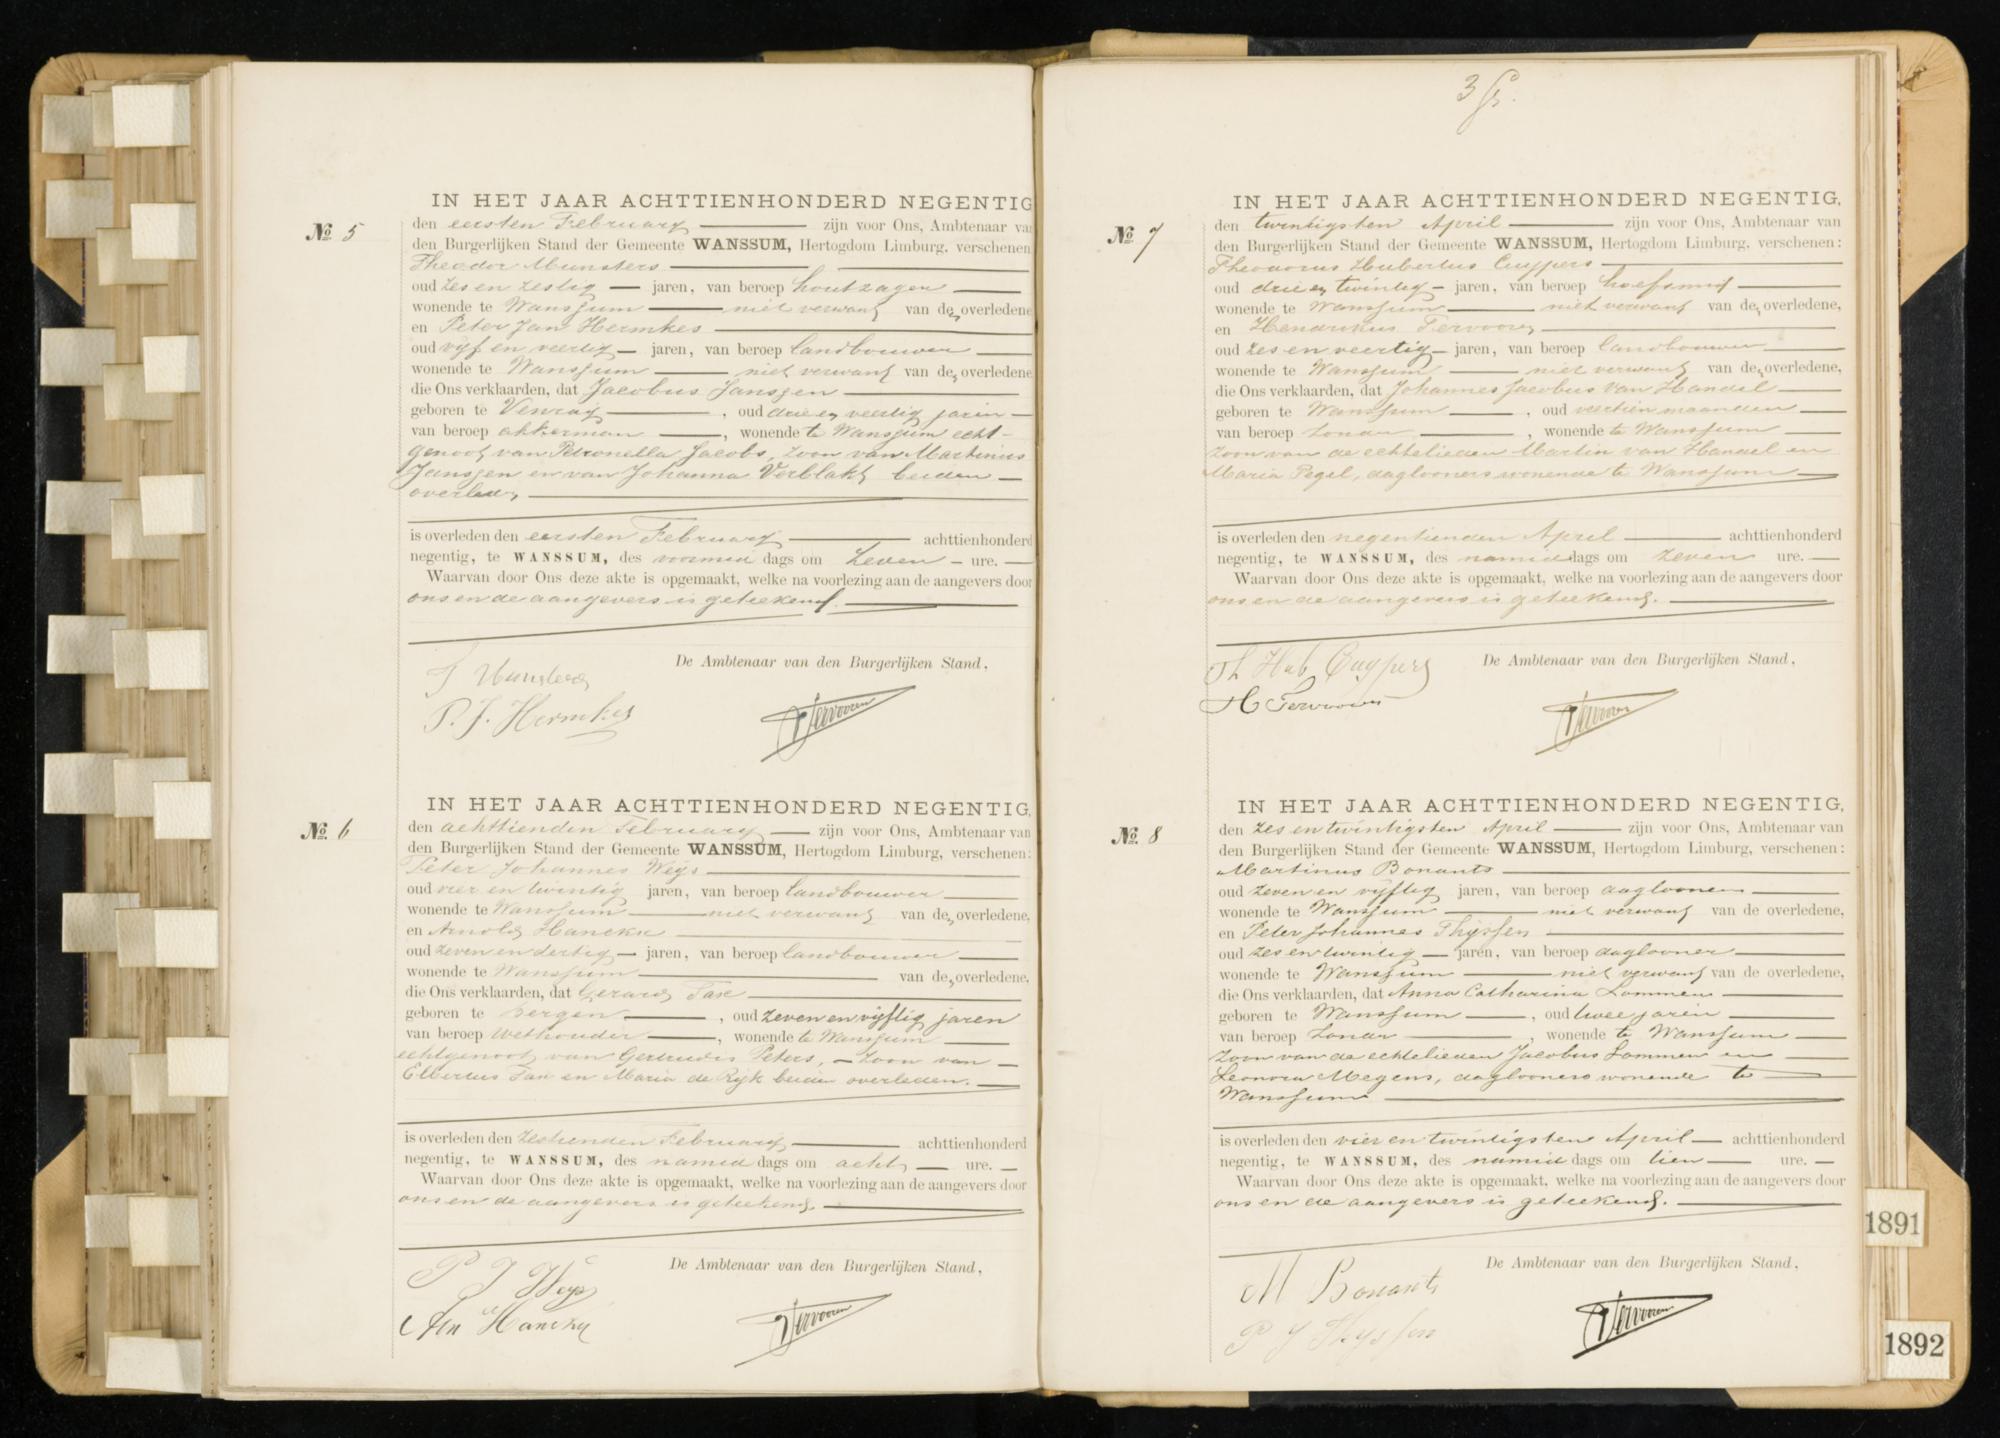 № 5
IN HET JAAR ACHTTIENHONDERD NEGENTIG
den eersten February zijn voor Ons, Ambtenaar va
den Burgerlijken Stand der Gemeente WANSSUM, Hertogdom Limburg, verschenen
Theodor Munsters
oud zes en zestig jaren, van beroep houtzager
wonende te Wanssum niet verwant van den overledene
en Peter Jan Hermkes
oud vijf en veertig jaren, van beroep landbouwer
wonende te Wanssum niet verwant van den overledene
die Ons verklaarden, dat Jacobus Janssen
geboren te Venray, oud drie en veertig jaren
van beroep akkerman, wonende te Wanssum echt-
genoot van Petronella Jacobs, zoon van Martinus
Janssen en van Johanna Verblakt beiden
overleden
is overleden den eersten February achttienhonderd
negentig, te WANSSUM, des voormid dags om zeven ure.
Waarvan door Ons deze akte is opgemaakt, welke na voorlezing aan de aangevers door
ons en de aangevers is geteekend.
De Ambtenaar van den Burgerlijken Stand,
T Munsters
P. J. Hermkes
Tervooren
№ 6
IN HET JAAR ACHTTIENHONDERD NEGENTIG,
den achttienden February zijn voor Ons, Ambtenaar van
den Burgerlijken Stand der Gemeente WANSSUM, Hertogdom Limburg, verschenen:
Peter Johannes Weijs
oud vier en twintig jaren, van beroep landbouwer
wonende te Wanssum niet verwant van den overledene,
en Arnold Hanckx
oud zeven en dertig jaren, van beroep landbouwer
wonende te Wanssum van den overledene,
die Ons verklaarden, dat Gerard Tax
geboren te Bergen, oud zeven en vijftig jaren
van beroep wethouder, wonende te Wanssum
echtgenoot van Gertrudis Peters, zoon van
Elbertus Tax en Maria de Rijk beiden overleden.
is overleden den zestienden February achttienhonderd
negentig, te WANSSUM, des namid dags om acht ure.
Waarvan door Ons deze akte is opgemaakt, welke na voorlezing aan de aangevers door
ons en de aangevers is geteekend
De Ambtenaar van den Burgerlijken Stand,
P J Weys
Tervooren
3
№ 7
IN HET JAAR ACHTTIENHONDERD NEGENTIG,
den twintigsten April zijn voor Ons, Ambtenaar van
den Burgerlijken Stand der Gemeente WANSSUM, Hertogdom Limburg, verschenen:
Theodorus Hubertus Cuypers
oud drie en twintig jaren, van beroep hoefsmid
wonende te Wanssum niet verwant van den overledene,
en Hendrikus Tervooren
oud zes en veertig jaren, van beroep landbouwer
wonende te Wanssum niet verwant van den overledene,
die Ons verklaarden, dat Johannes Jacobus van Handel
geboren te Wanssum, oud veertien maanden
van beroep zonder, wonende te Wanssum
zoon van de echtelieden Martin van Handel en
Maria Pegel, daglooners wonende te Wanssum
is overleden den negentienden April achttienhonderd
negentig, te WANSSUM, des namid dags om zeven ure.
Waarvan door Ons deze akte is opgemaakt, welke na voorlezing aan de aangevers door
ons en de aangevers is geteekend.
De Ambtenaar van den Burgerlijken Stand,
Th Hub Cuypers
H Tervooren
Tervooren
№ 8
IN HET JAAR ACHTTIENHONDERD NEGENTIG,
den zes en twintigsten April zijn voor Ons, Ambtenaar van
den Burgerlijken Stand der Gemeente WANSSUM, Hertogdom Limburg, verschenen:
Martinus Bonants
oud zeven en vijftig jaren, van beroep daglooner
wonende te Wanssum niet verwant van de overledene,
en Peter Johannes Thijssen
oud zes en twintig jaren, van beroep daglooner
wonende te Wanssum niet verwant van de overledene,
die Ons verklaarden, dat Anna Catharina Lommen
geboren te Wanssum, oud twee jaren
van beroep zonder, wonende te Wanssum
zoon van de echtelieden Jacobus Lommen en
Leonora Megens, daglooners wonende te
Wanssum
is overleden den vier en twintigsten April achttienhonderd
negentig, te WANSSUM, des namid dags om tien ure.
Waarvan door Ons deze akte is opgemaakt, welke na voorlezing aan de aangevers door
ons en de aangevers is geteekend.
De Ambtenaar van den Burgerlijken Stand,
M Bonants
P J Thyssen
Tervooren
1891
1892